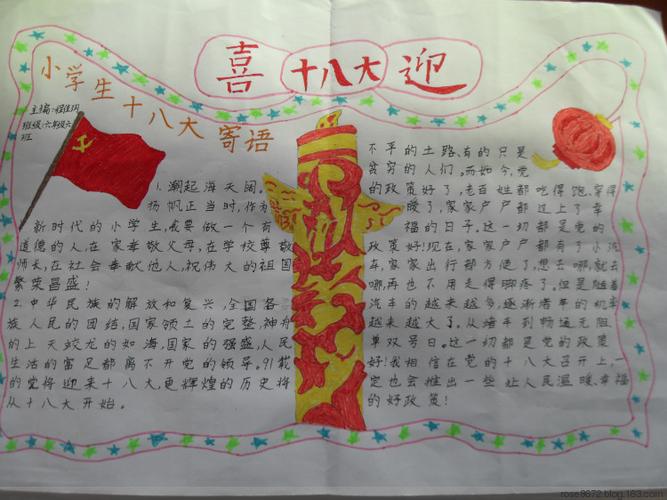 喜 十八大 迎
小学生十八大寄语
主编:
班级:六年级六
班
1.潮起海天阔。
扬帆正当时,作为
新时代的小学生,我要做一个有
道德的人,在家孝敬父母,在学校尊敬
师长,在社会奉献他人,祝伟大的祖国
繁荣昌盛!
2.中华民族的解放和复兴,全国各
族人民的团结,国家领土的完整,神舟
的上天蛟龙的如海,国家的强盛,人民
生活的富足都离不开党的领导。91载
的党将迎来十八大,更辉煌的历史将
从十八大开始。
不平的土路、有的只是
贫穷的人们。而如今,党
的政策好了,老百姓都吃得饱、穿得
暖了,家家户户都过上了幸
福的日子,这一切都是党的
政策好!现在,家家户户都有了小汽
车,家家出行都方便了,想去哪,就去
哪,再也不用走得脚疼了。但是随着
汽车的越来越多,逐渐堵车的机率
越来越大了。从堵车到畅通无阻、
单双号日。这一切都是党的政策
好!我相信在党的十八大召开上,一
定也会推出一些让人民温暖、幸福
的好政策!
rose8672.blog.163.com